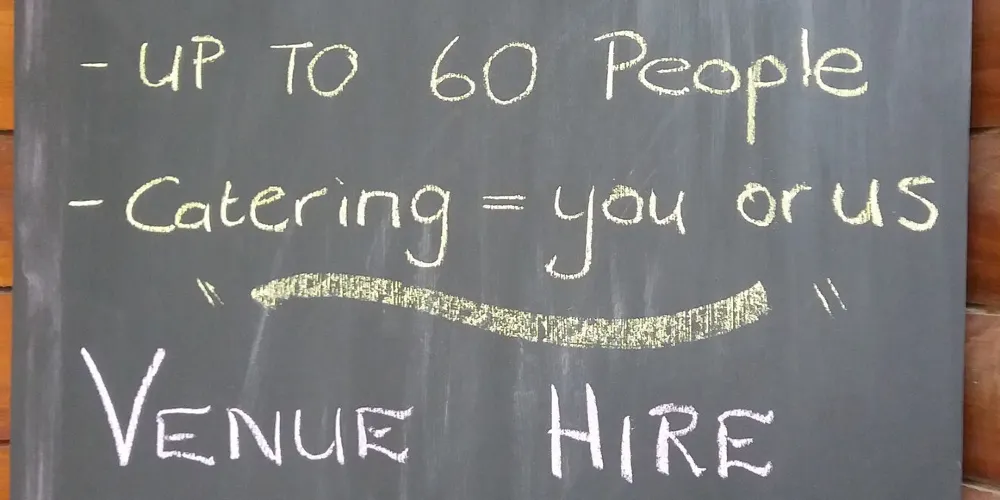 - UP TO 60 People
- Catering = you or us
VENUE HIRE